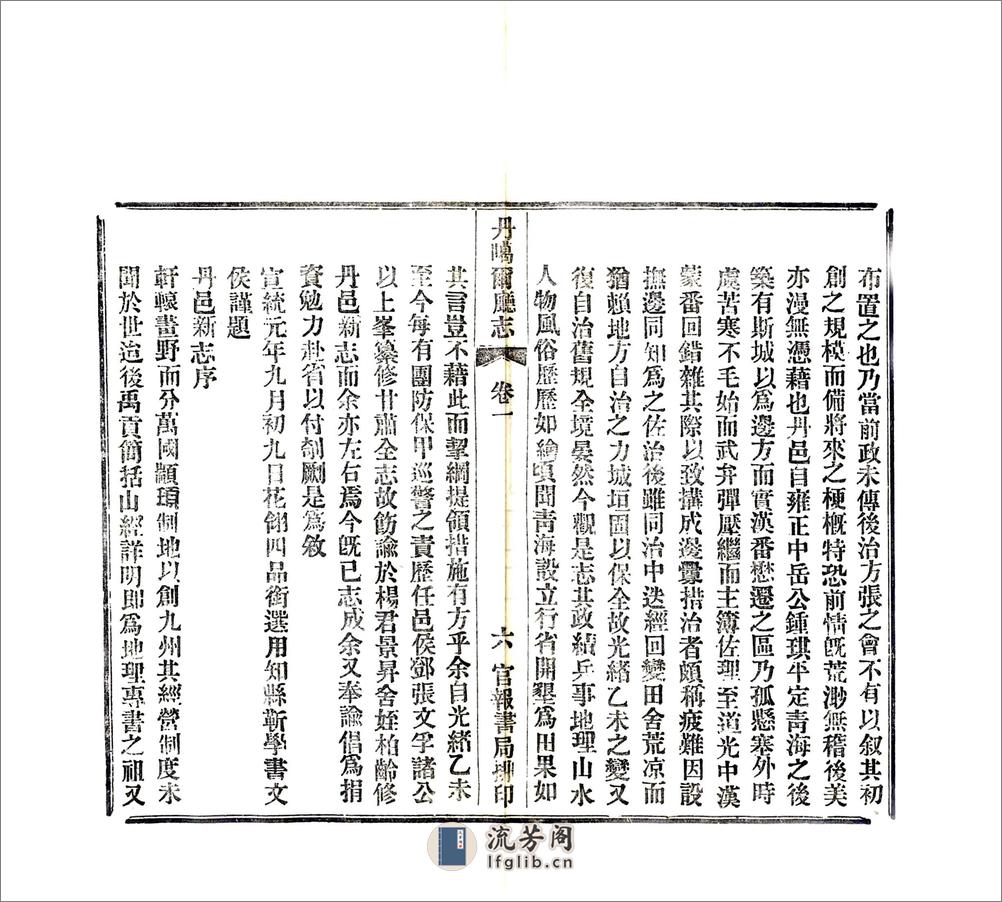 布置之也乃當前政未傳後治方張之會不有以叙其初
創之規模而備將來之梗概特恐前情既荒渺無稽後美
亦漫無憑藉也丹邑自雍正中岳公鍾琪平定靑海之後
築有斯城以爲邊方而實漢番懋遷之區乃孤懸塞外時
處苦寒不毛始而武弁彈壓繼而主簿佐理至道光中漢
蒙番回錯雜其際以致搆成邊釁措治者頗稱疲難因設
撫邊同知爲之佐治後雖同治中迭經回變田舍荒凉而
猶賴地方自治之力城垣固以保全故光緒乙未之變又
復自治舊規全境晏然今觀是志其政績兵事地理山水
人物風俗歷歷如繪頃聞靑海設立行省開墾爲田果如
丹噶爾廳志 卷一 六 官報書局排印
其言豈不藉此而挈綱提領措施有方乎余自光緒乙未
至今每有團防保甲巡警之責歷任邑侯鄧張文孚諸公
以上峯纂修甘肅全志故飭諭於楊君景昇舍姪柏齡修
丹邑新志而余亦左右焉今既已志成余又奉諭倡爲捐
資勉力赴省以付剞劂是爲敘
宣統元年九月初九日花翎四品銜選用知縣靳學書文
侯謹題
丹邑新志序
軒轅畫野而分萬國顓頊制地以創九州其經營制度未
聞於世迨後禹貢簡括山經詳明即爲地理專書之祖又
流芳阁
lfglib.cn